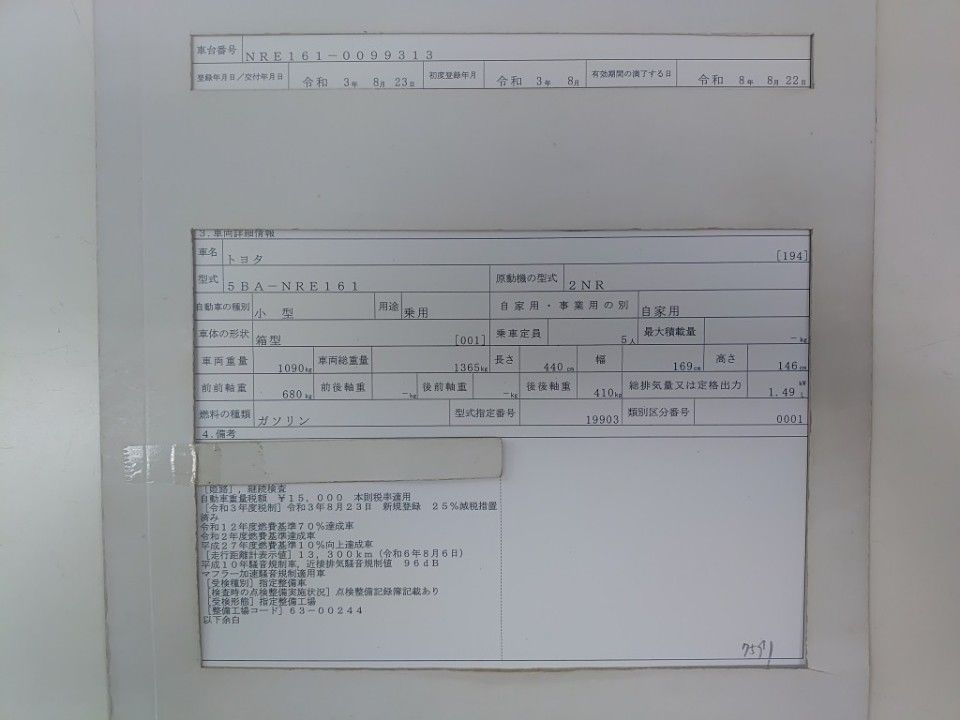 車台番号 NRE161-0099313
登録年月日／交付年月日 令和 3年 8月 23日 初度登録年月 令和 3年 8月 有効期間の満了する日 令和 8年 8月 22日
3.車両詳細情報
車名 トヨタ [194]
型式 5BA-NRE161 原動機の型式 2NR
自動車の種別 小型 用途 乗用 自家用・事業用の別 自家用
車体の形状 箱型 [001] 乗車定員 5人 最大積載量 -kg
車両重量 1090kg 車両総重量 1365kg 長さ 440cm 幅 169cm 高さ 146cm
前前軸重 680kg 前後軸重 -kg 後前軸重 -kg 後後軸重 410kg 総排気量又は定格出力 1.49 kW L
燃料の種類 ガソリン 型式指定番号 19903 類別区分番号 0001
4.備考
[姫路]，継続検査
自動車重量税額 ￥15，000 本則税率適用
[令和3年度税制]令和3年8月23日 新規登録 25％減税措置
済み
令和12年度燃費基準70％達成車
令和2年度燃費基準達成車
平成27年度燃費基準10％向上達成車
[走行距離計表示値]13，300km（令和6年8月6日）
平成10年騒音規制車，近接排気騒音規制値 96dB
マフラー加速騒音規制適用車
[受検種別]指定整備車
[検査時の点検整備実施状況]点検整備記録簿記載あり
[受検形態]指定工場
[整備工場コード]63-00244
以下余白